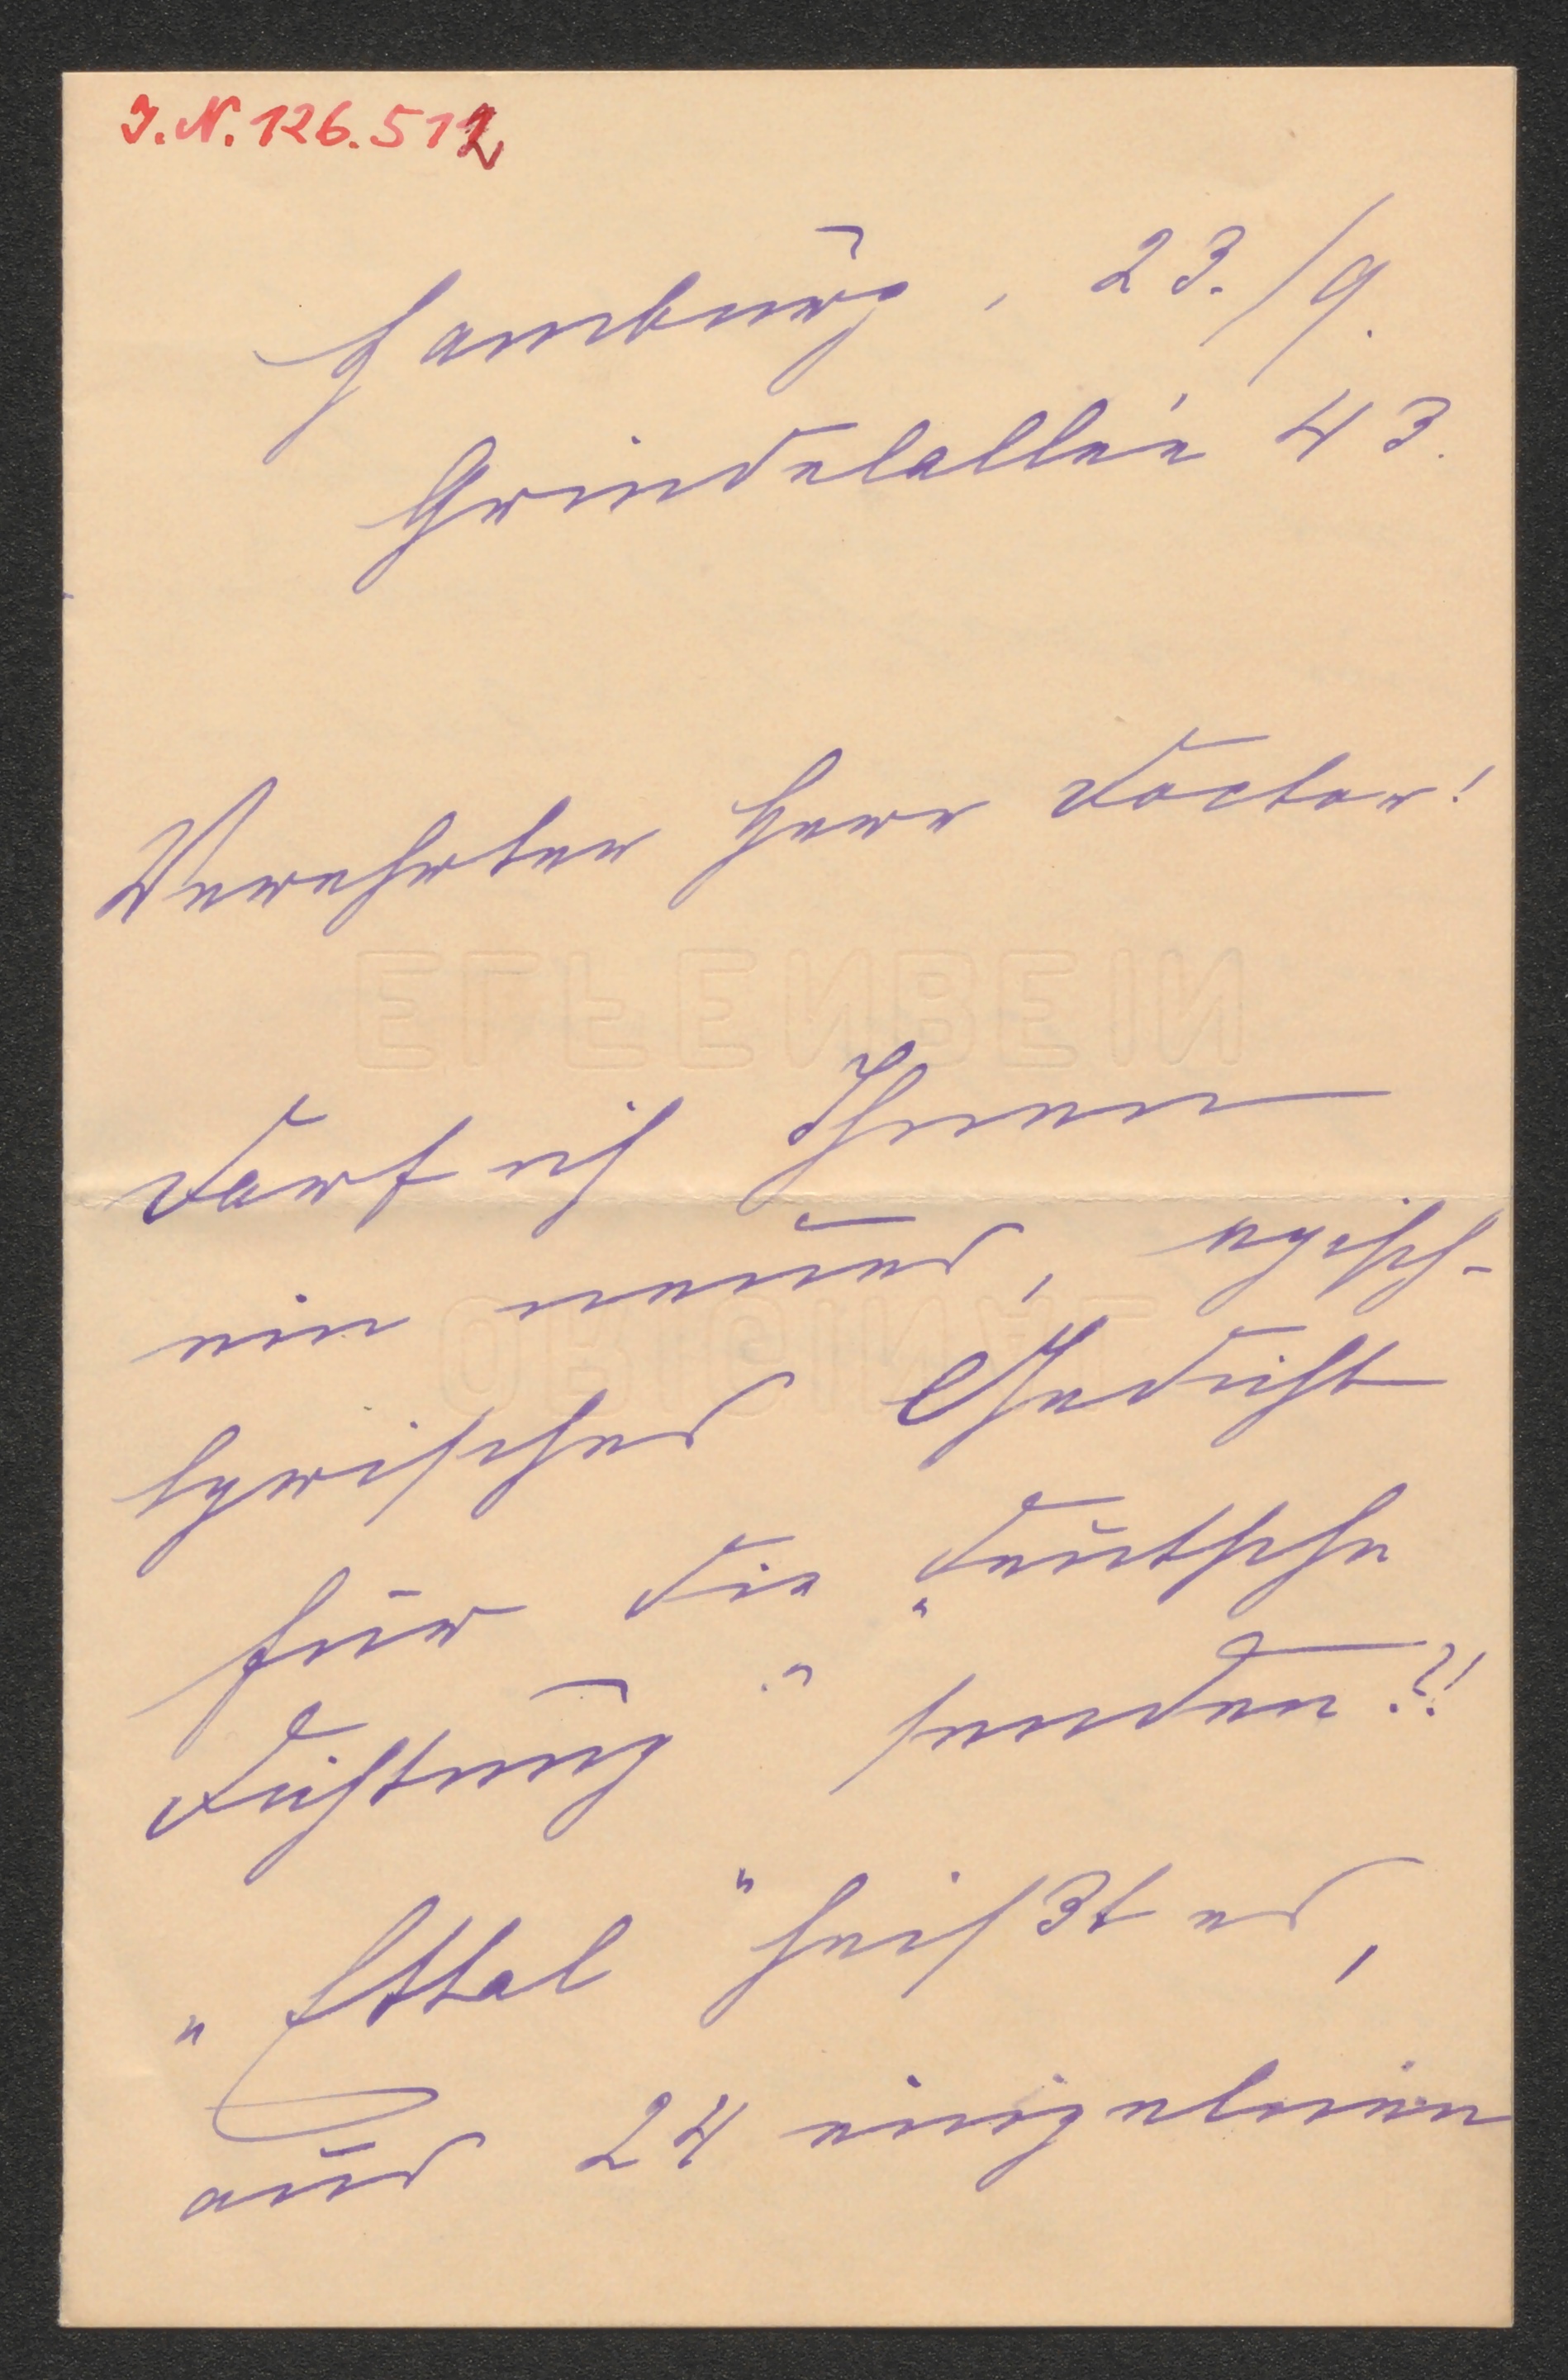 I.N. 126.512
Hamburg, 23./9.
Grindelallée 43.
Verehrter Herr Doctor!
ELFENBEIN
Darf ich Ihnen
ein neues, episch-
ORIGINAL
lyrisches Gedicht
für die „Deutsche
Dichtung" senden?!
„Ettal" heißt es,
aus 24 einzelnen